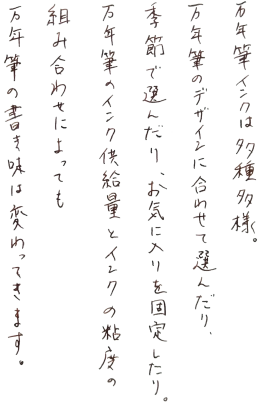 万年筆インクは多種多様。
万年筆のデザインに合わせて選んだり、
季節で選んだり、お気に入りを固定したり。
万年筆のインク供給量とインクの粘度の
組み合わせによっても
万年筆の書き味は変わってきます。